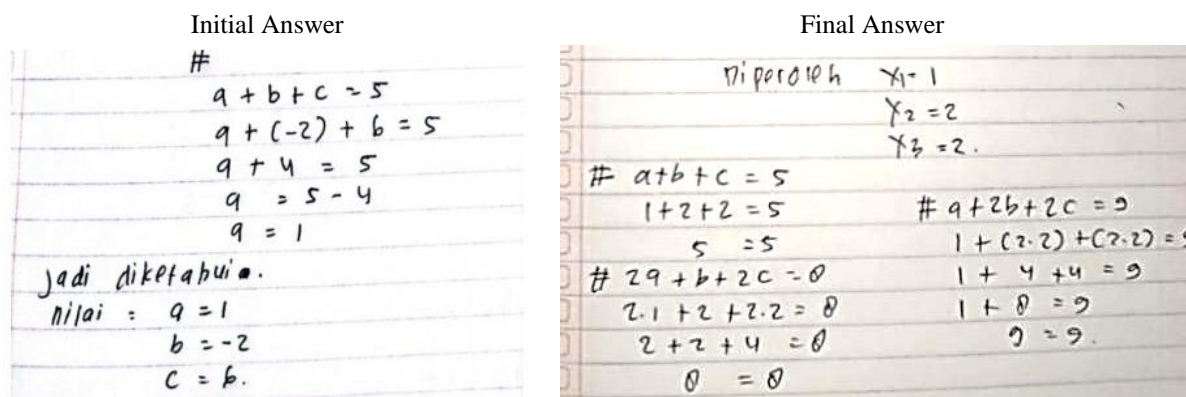 Initial Answer
#
a + b + c = 5
a + (-2) + 6 = 5
a + 4 = 5
a = 5 - 4
a = 1
Jadi diketahui.
nilai : a = 1
b = -2
c = 6.
Final Answer
Diperoleh X1 = 1
X2 = 2
X3 = 2.
# a+b+c = 5
1+2+2 = 5
5 = 5
# 2a + b + 2c = 8
2.1 + 2 + 2.2 = 8
2 + 2 + 4 = 8
8 = 8
# a + 2b + 2c = 9
1 + (2.2) + (2.2) = 9
1 + 4 + 4 = 9
1 + 8 = 9
9 = 9.